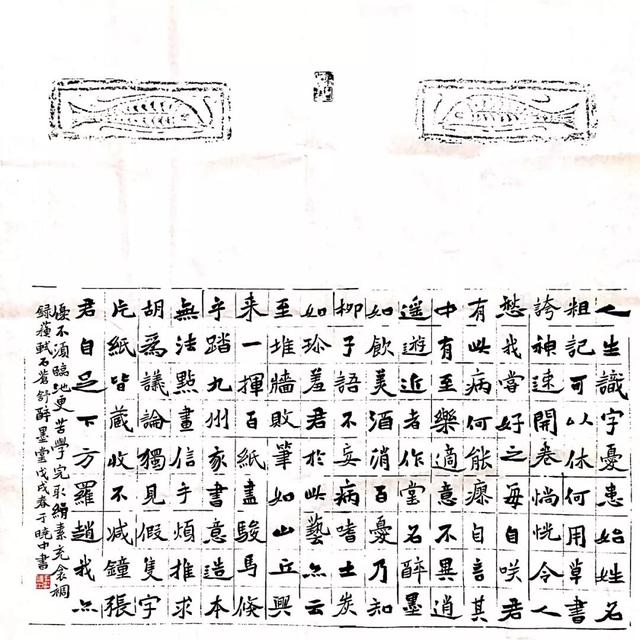 人生識字憂患始姓名
粗記可以休何用草書
誇神速開卷惝恍令人
愁我嘗好之每自咲君
有此病何能瘳自言其
中有至樂適意不異逍
遥遊近者作堂名醉墨
如飲美酒消百憂乃知
柳子語不妄病嗜土炭
如珍羞君於此藝亦云
至堆牆敗筆如山丘興
来一揮百紙盡駿馬倏
乎踏九州家書意造本
無法點畫信手煩推求
胡為議論獨見假隻字
片紙皆藏收不減鐘張
君自足下方羅趙我亦
優不須臨池更苦學完取絹素充衾裯
録蘇軾石蒼舒醉墨堂戊戌春于曉中書